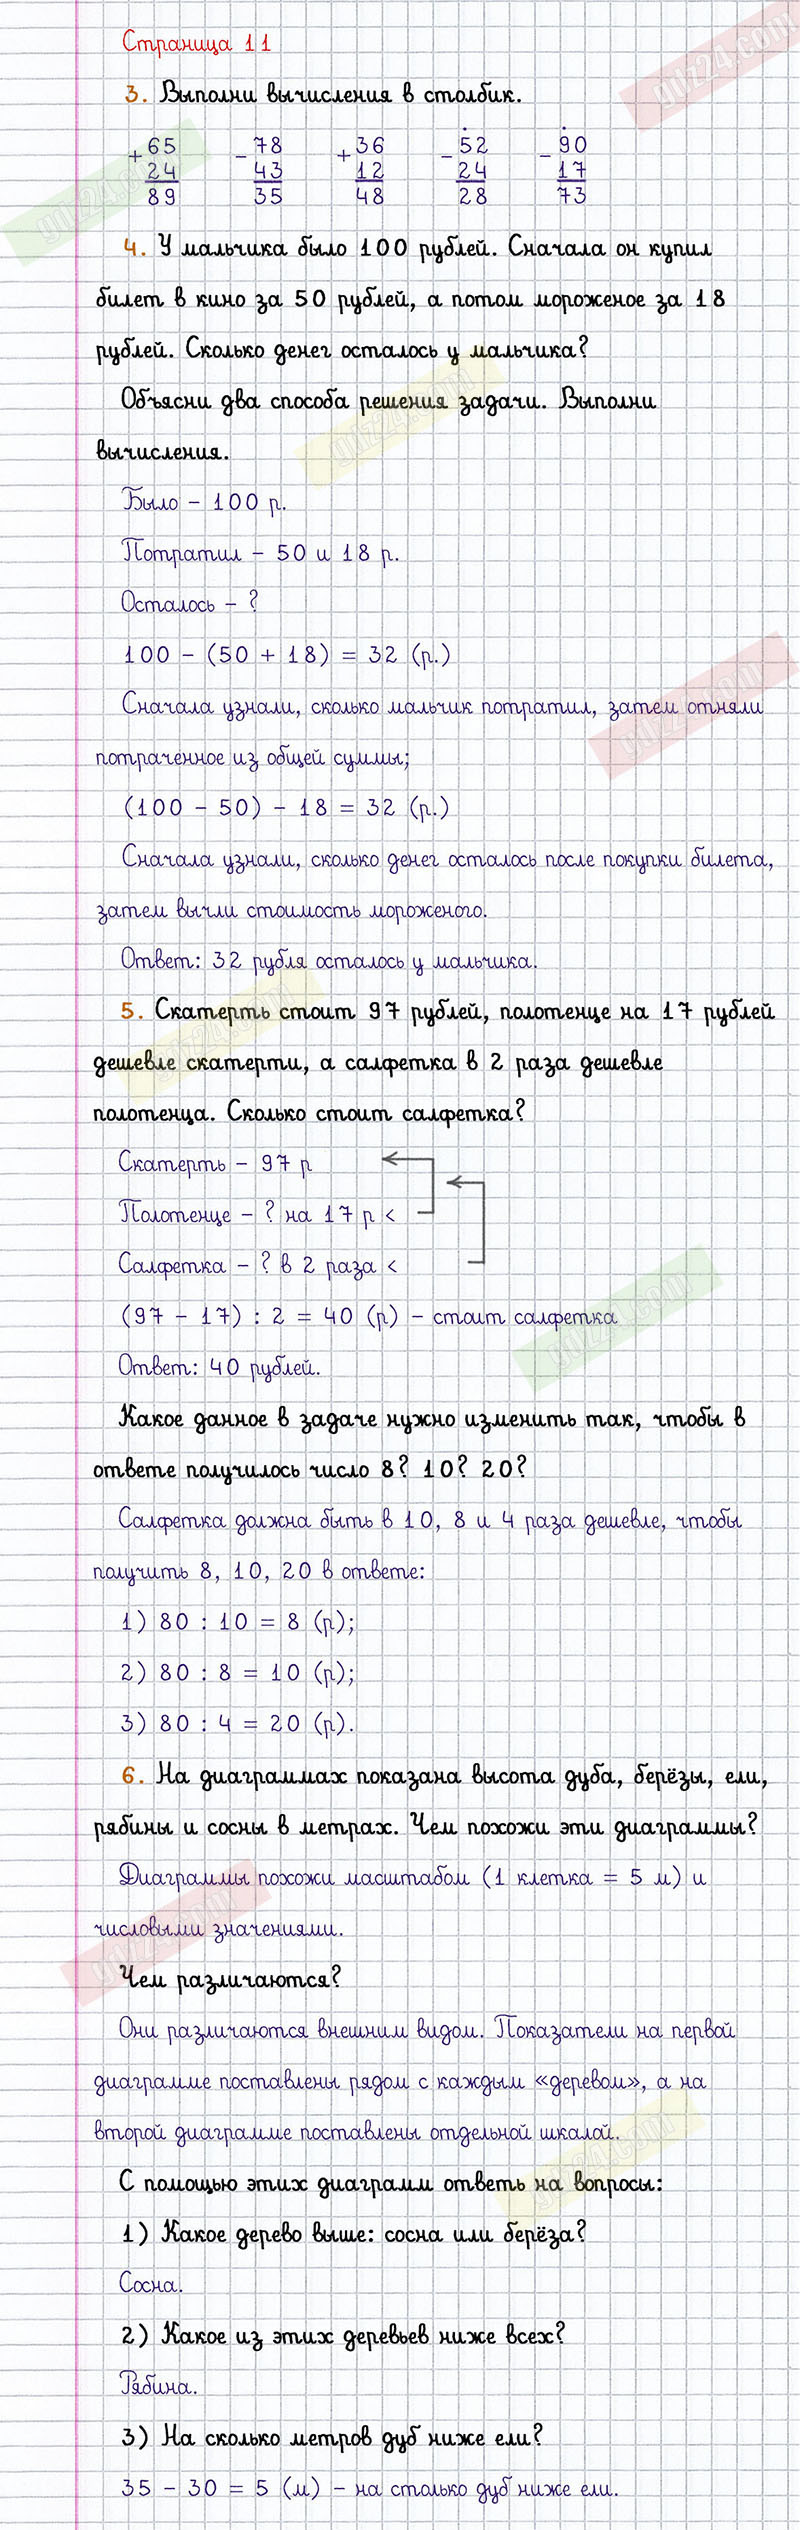 Страница 11
3. Выполни вычисления в столбик.
+ 65 - 78 + 36 - 52 - 90
24 43 12 24 17
89 35 48 28 73
4. У мальчика было 100 рублей. Сначала он купил
билет в кино за 50 рублей, а потом мороженое за 18
рублей. Сколько денег осталось у мальчика?
Объясни два способа решения задачи. Выполни
вычисления.
Было – 100 р.
Потратил – 50 и 18 р.
Осталось – ?
100 – (50 + 18) = 32 (р.)
Сначала узнали, сколько мальчик потратил, затем отняли
потраченное из общей суммы;
(100 – 50) – 18 = 32 (р.)
Сначала узнали, сколько денег осталось после покупки билета,
затем вычли стоимость мороженого.
Ответ: 32 рубля осталось у мальчика.
5. Скатерть стоит 97 рублей, полотенце на 17 рублей
дешевле скатерти, а салфетка в 2 раза дешевле
полотенца. Сколько стоит салфетка?
Скатерть – 97 р
Полотенце – ? на 17 р <
Салфетка – ? в 2 раза <
(97 – 17) : 2 = 40 (р) – стоит салфетка
Ответ: 40 рублей.
Какое данное в задаче нужно изменить так, чтобы в
ответе получилось число 8? 10? 20?
Салфетка должна быть в 10, 8 и 4 раза дешевле, чтобы
получить 8, 10, 20 в ответе:
1) 80 : 10 = 8 (р);
2) 80 : 8 = 10 (р);
3) 80 : 4 = 20 (р).
6. На диаграммах показана высота дуба, берёзы, ели,
рябины и сосны в метрах. Чем похожи эти диаграммы?
Диаграммы похожи масштабом (1 клетка = 5 м) и
числовыми значениями.
Чем различаются?
Они различаются внешним видом. Показатели на первой
диаграмме поставлены рядом с каждым «деревом», а на
второй диаграмме поставлены отдельной шкалой.
С помощью этих диаграмм ответь на вопросы:
1) Какое дерево выше: сосна или берёза?
Сосна.
2) Какое из этих деревьев ниже всех?
Рябина.
3) На сколько метров дуб ниже ели?
35 – 30 = 5 (м) – на столько дуб ниже ели.
gdz24.com
gdz24.com
gdz24.com
gdz24.com
gdz24.com
gdz24.com
gdz24.com
gdz24.com